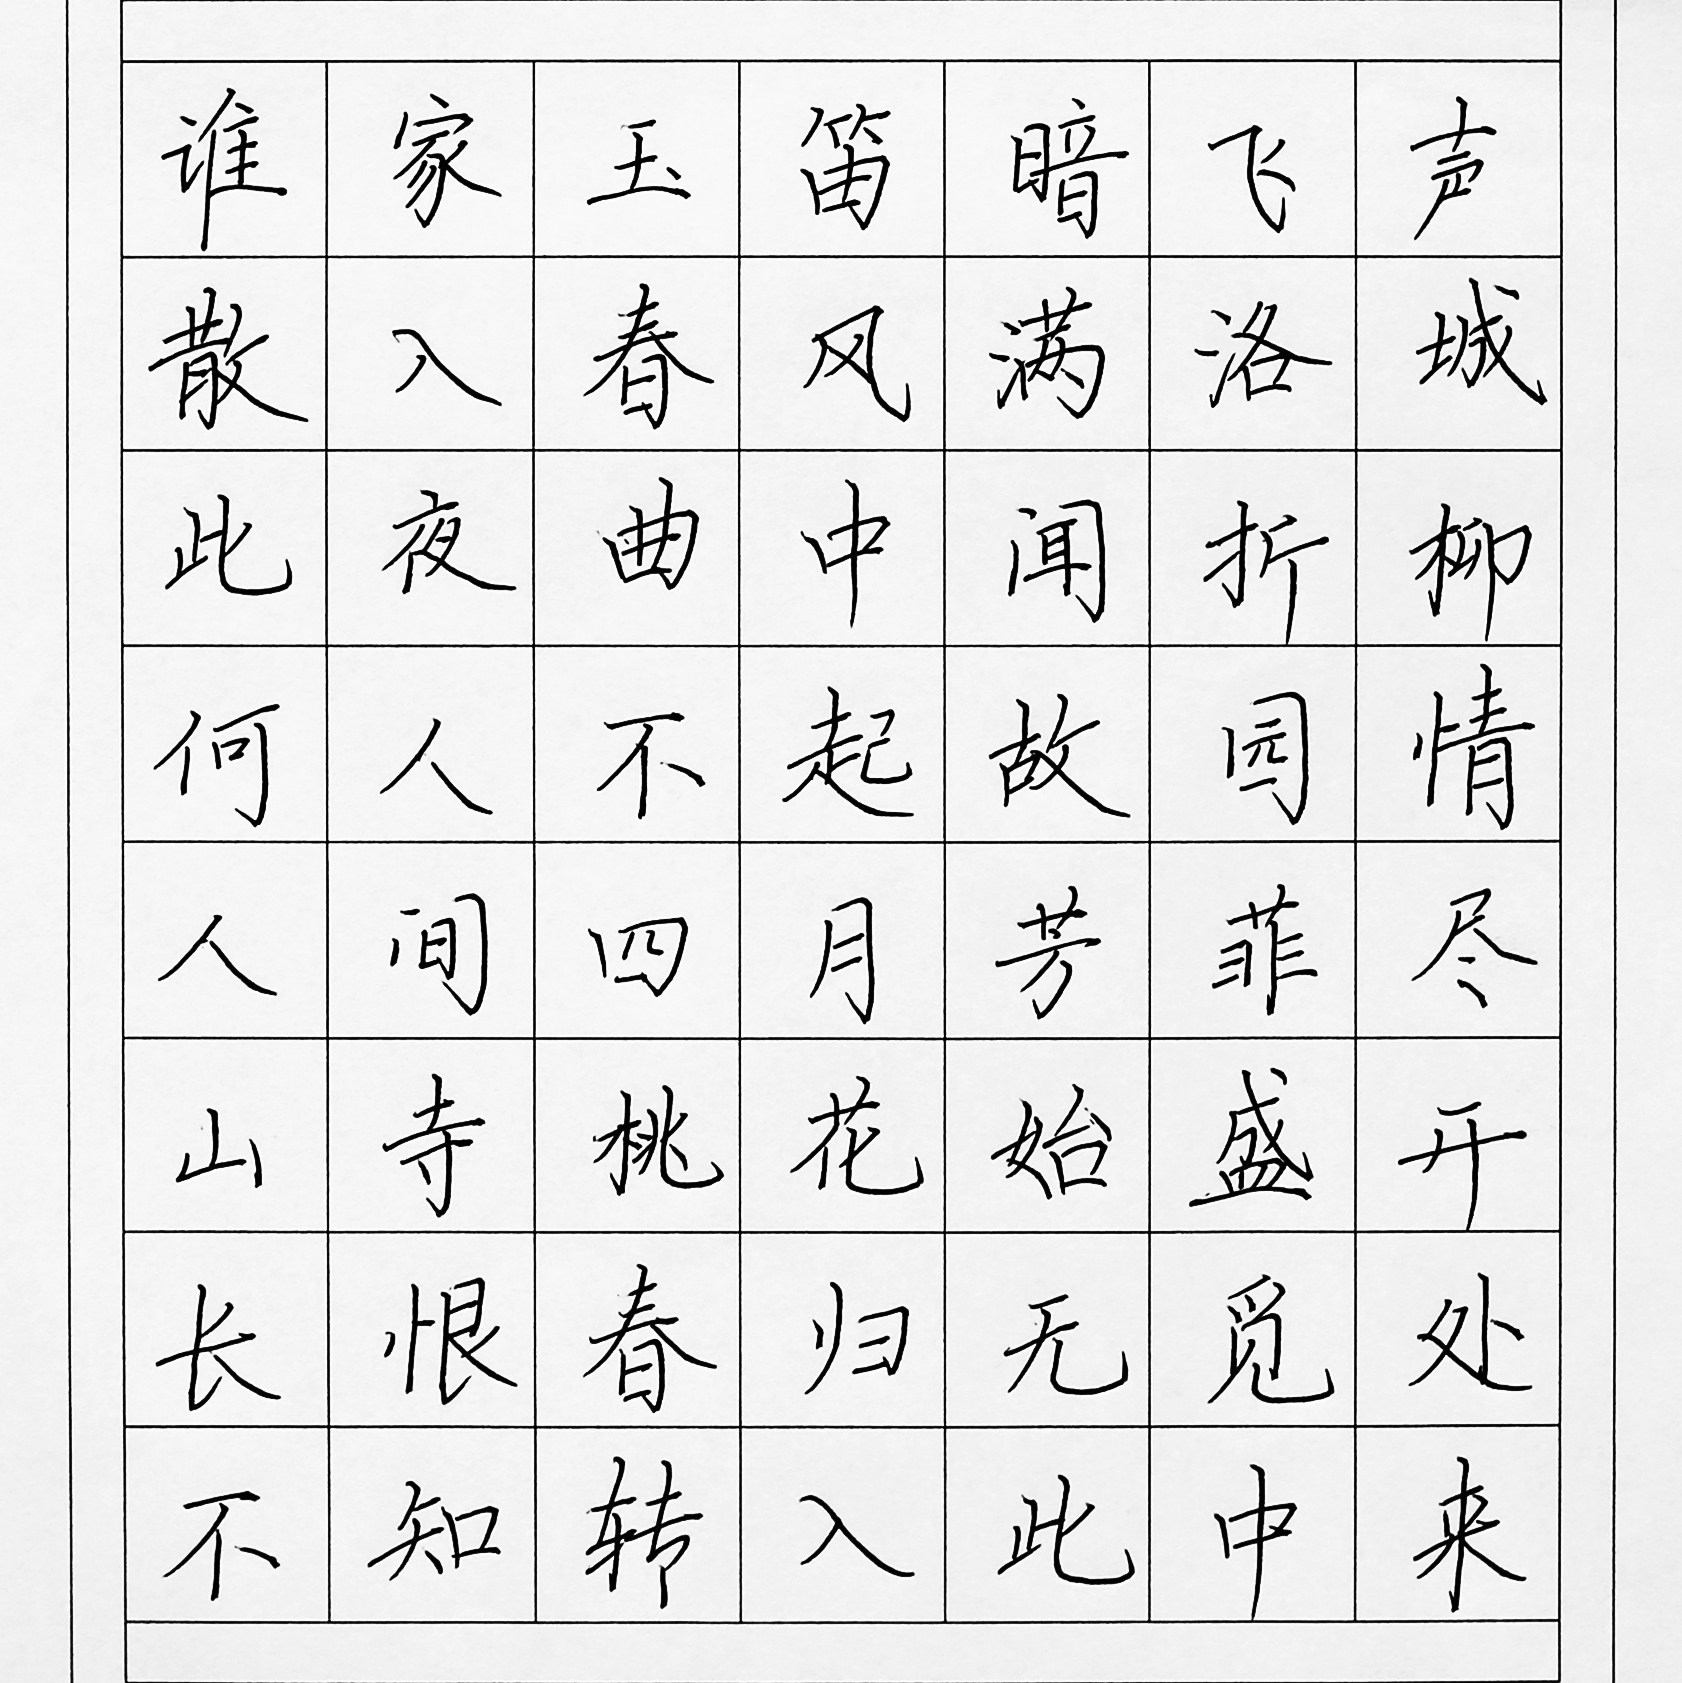 谁家玉笛暗飞声
散入春风满洛城
此夜曲中闻折柳
何人不起故园情
人间四月芳菲尽
山寺桃花始盛开
长恨春归无觅处
不知转入此中来